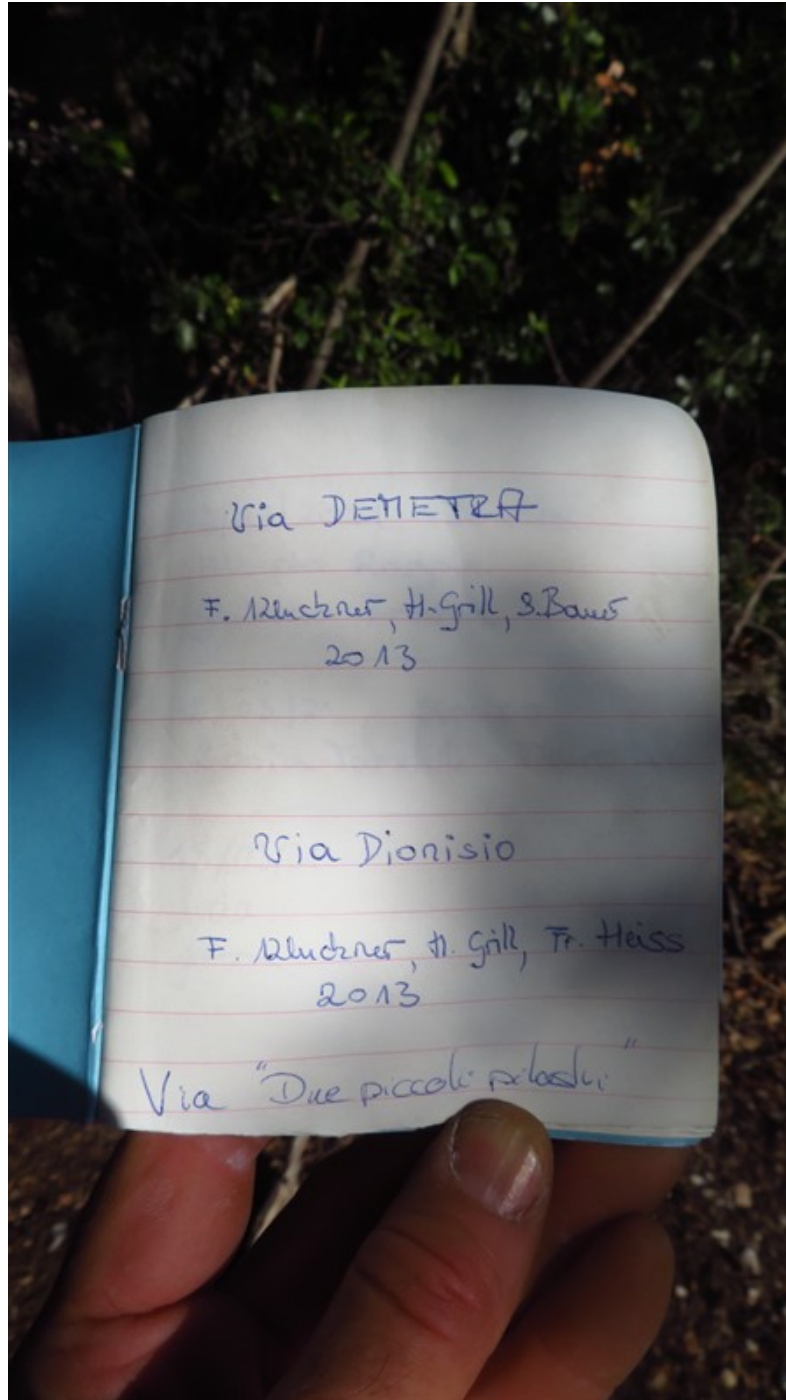 Via DEMETRA
F. Kluckner, H. Grill, S. Bauer
2013
Via Dionisio
F. Kluckner, H. Grill, Fr. Heiss
2013
Via "Due piccoli pilastri"